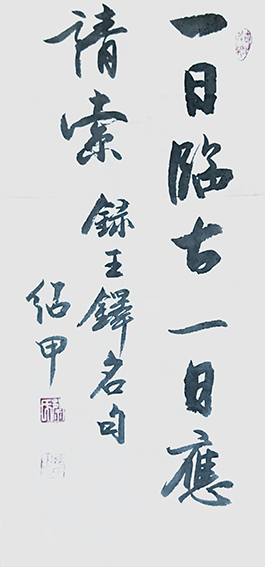 一日臨古一日應
請索 録王鐸名句
紹甲